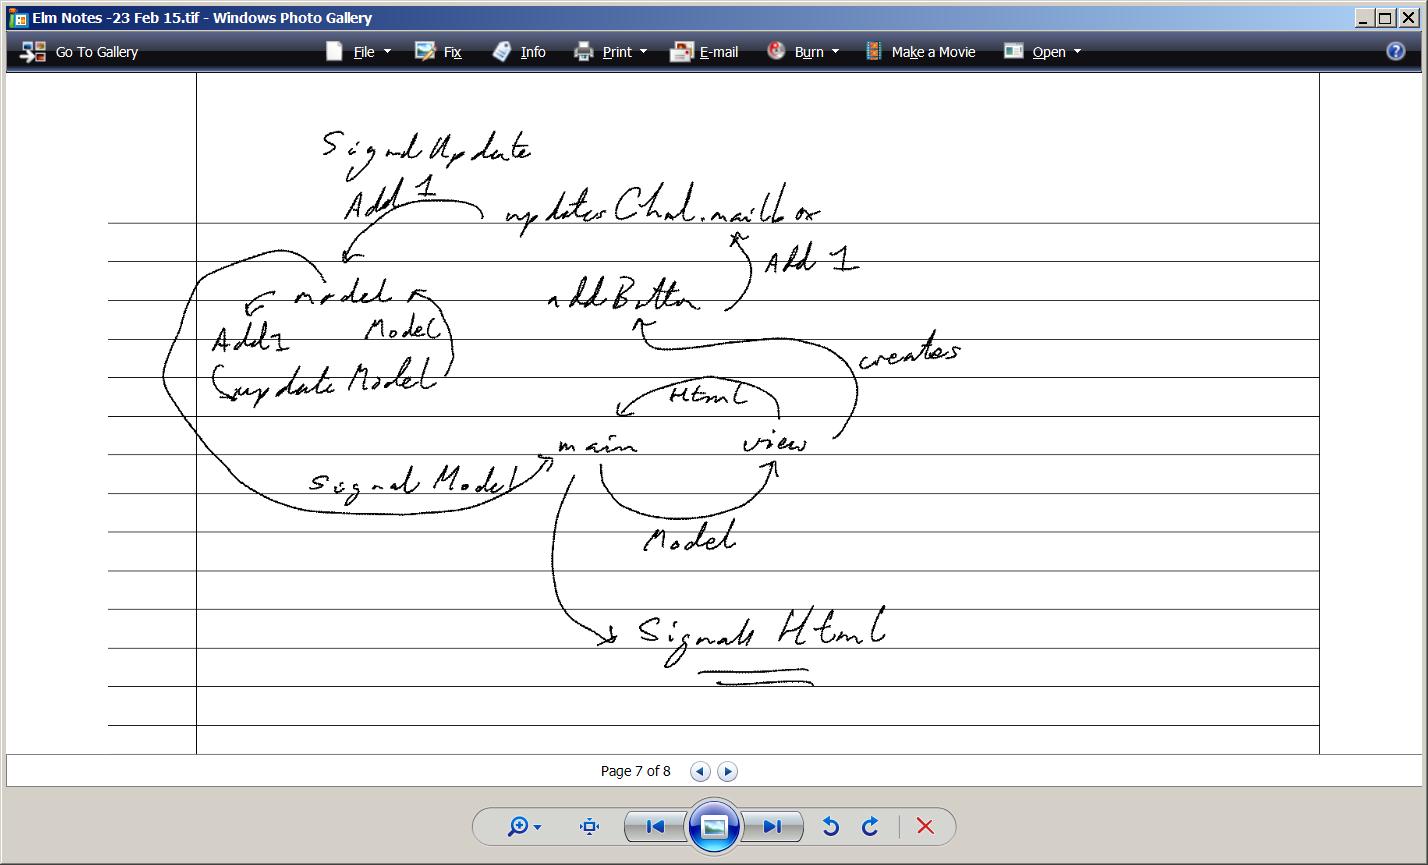 Elm Notes -23 Feb 15.tif - Windows Photo Gallery
Go To Gallery File Fix Info Print E-mail Burn Make a Movie Open
Signal Update
Add 1
updatesChnl.mailbox
Add 1
model
addButton
Add 1
Model
updateModel
creates
Html
main
view
Signal Model
Model
Signals Html
Page 7 of 8